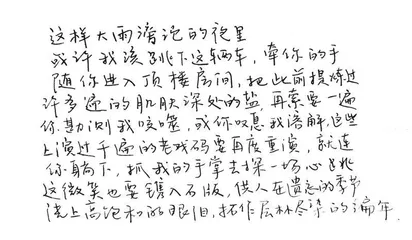 这样大雨滂沱的夜里
或许我该跳下这辆车,牵你的手
随你进入顶楼房间,把此前提炼过
许多遍的肌肤深处的盐,再索要一遍
你勘测我吹噬,或你叹息我溶解,这些
上演过千遍的老戏码要再度重演,就连
你躺下,抓我的手掌去探一场心跳
这微笑也要镌入石版,供人在遗忘的季节
浇上高饱和的眼泪,拓作层林尽染的遍年